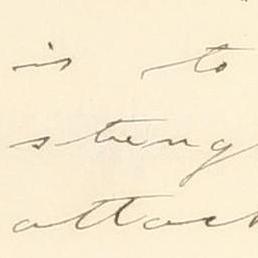 is to
streng
attack